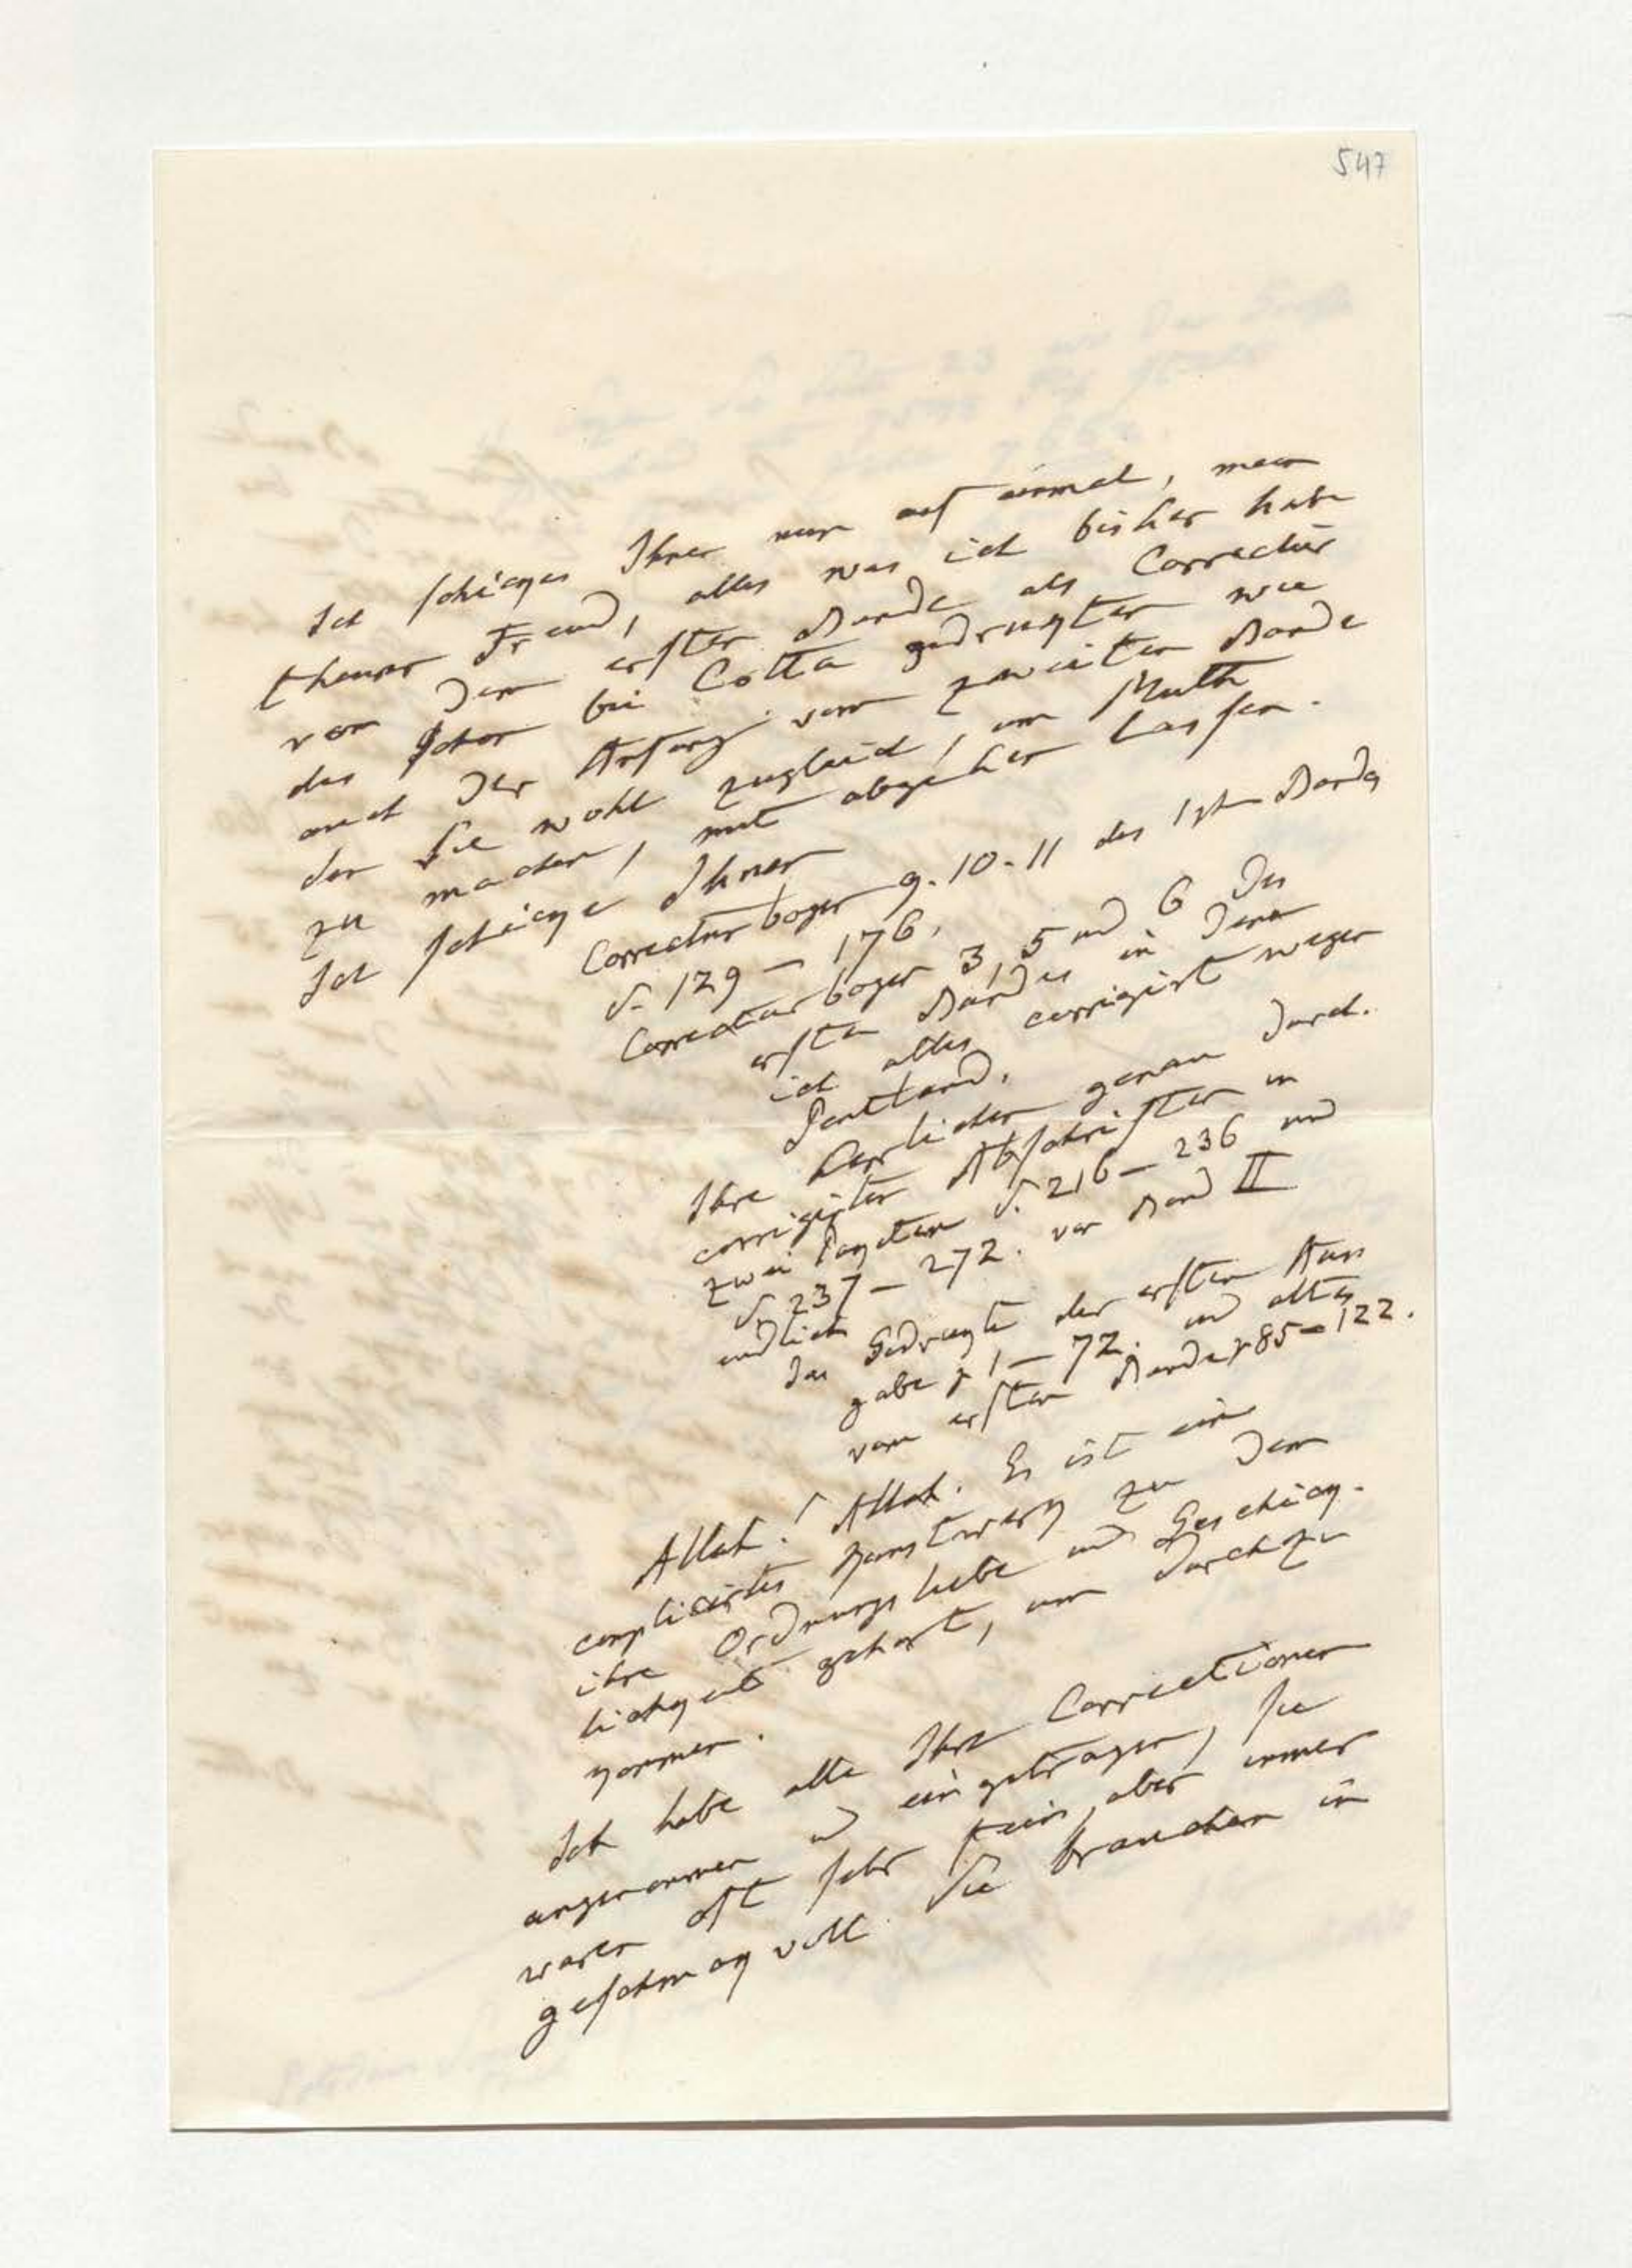 547
Ich schicke Ihnen nun auf einmal, mein
theurer Freund, alles was ich bisher habe
von dem ersten Bande als Correctur
des schon bei Cotta gedrukten wie
auch den Anfang vom zweiten Bande
den Sie wohl zugleich, um Muth
zu machen, mit abgehen lassen.
Ich schicke Ihnen
Correcturbogen 9. 10-11 des 1sten Bandes
S. 129 — 176,
Correcturbogen 3, 5 und 6 des
ersten Bandes in denen
ich alles corrigirt wegen
Pentland.
Ihre herrlichen genau durch
corrigirten Abschriften in
zwei Paqueten S. 216 — 236 und
S. 237 — 272. von Band II
endlich
das Gedrukte der ersten Aus
gabe p 1 — 72. und altes
vom ersten Bande p 85 — 122.
Allah! Allah. Es ist ein
complicirtes Kunstwerk zu dem
ihre Ordnungsliebe und Geschick-
lichkeit gehört, um durchzu
kommen.
Ich habe alle Ihre Correctionen
angenommen u eingetragen, sie
waren oft sehr fein, aber immer
geschmakvoll. Sie brauchen in